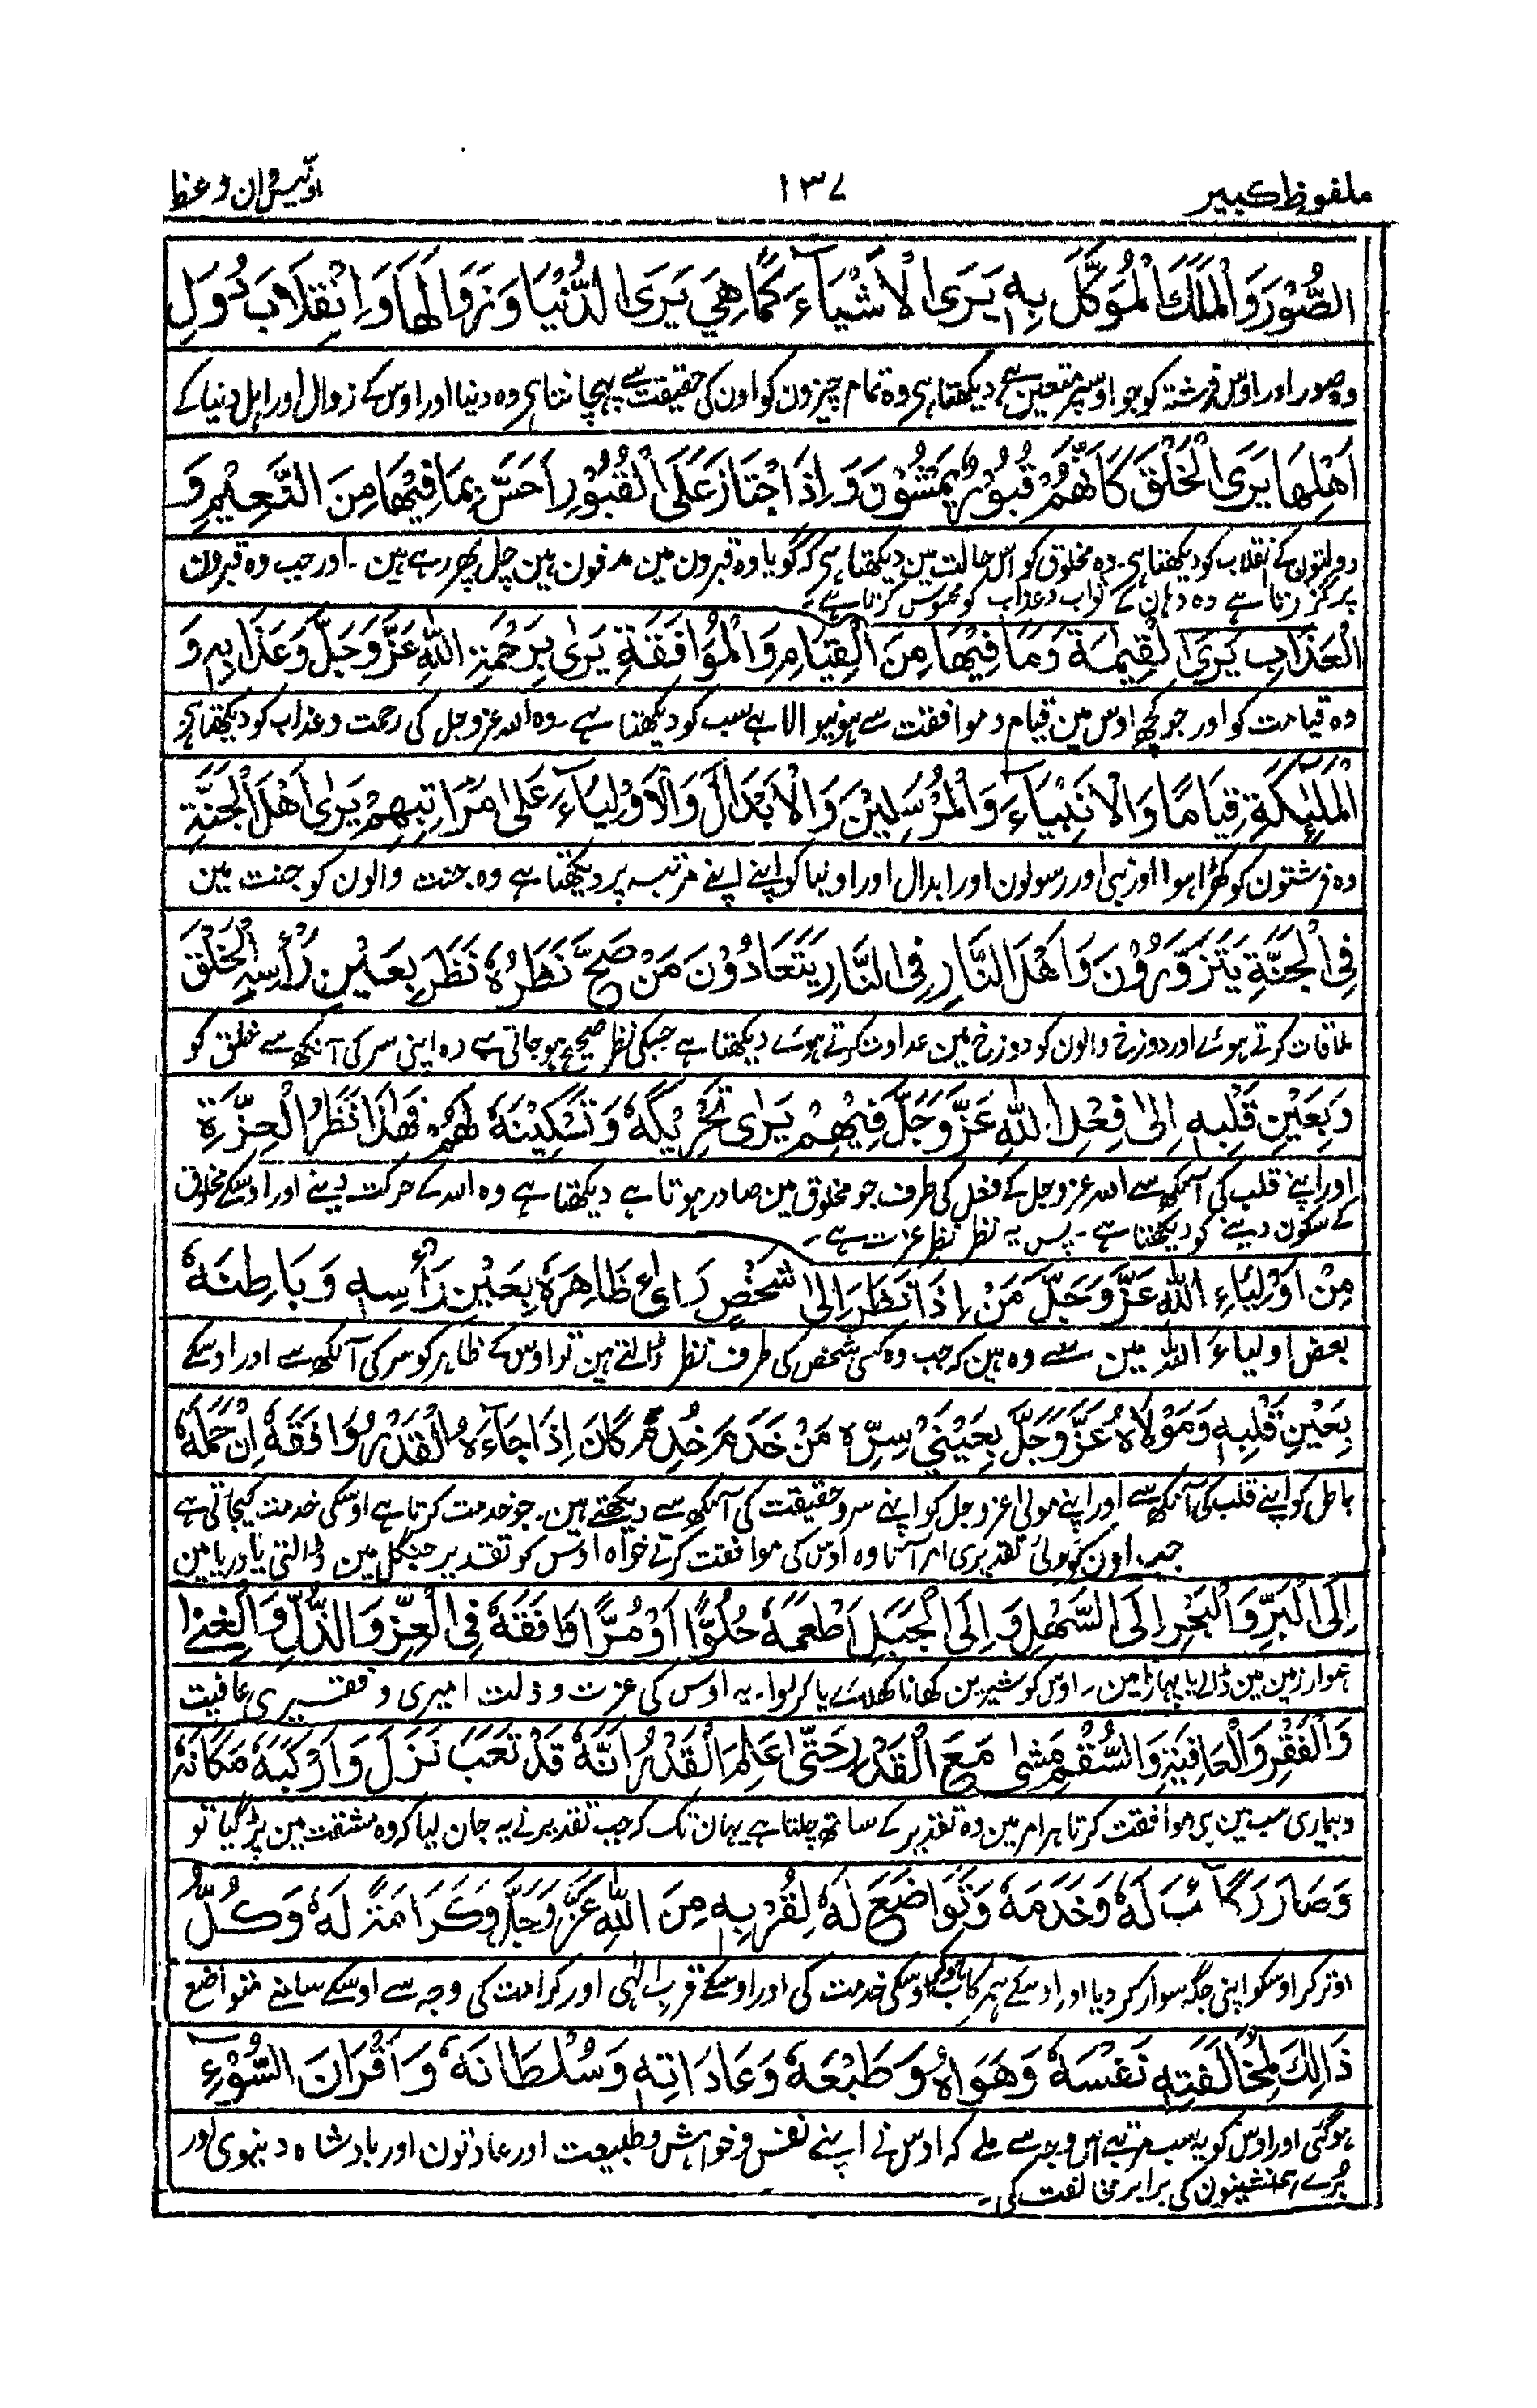 ملفوظ کبیر
١٣٧
اونیسوان وعظ
الصُّوْرَ وَالْمَلَكَ الْمُوَكَّلَ بِهٖ يَرَى الْاَشْيَآءَ كَمَا هِيَ يَرَى الدُّنْيَا وَزَوَالَهَا وَاِنْقِلَابَ دُوَلِ
وہ صور اور اوس فرشتہ کو جو اوسپر متعین ہے دیکھتا ہی وہ تمام چیزون کو اون کی حقیقت سے پہچانتا ہی وہ دنیا اور اوس کے زوال اور اہل دنیا کے
اَهْلِهَا يَرَى الْخَلْقَ كَاَنَّهُمْ قُبُوْرٌ يَمْشُوْنَ وَاِذَا جْتَازَ عَلَى الْقُبُوْرِ اَحَسَّ بِمَا فِيْهَا مِنَ النَّعِيْمِ وَ
دولتون کے انقلاب کو دیکھتا ہی۔ وہ مخلوق کو اس حالت مین دیکھتا ہی کہ گویا وہ قبرون مین مدفون ہین چل پھر رہے ہین۔ اور جب وہ قبرون
پر گزرتا ہے وہ وہان کے ثواب وعذاب کو محسوس کرتا ہے۔
الْعَذَابِ يَرَى الْقِيٰمَةَ وَمَا فِيْهَا مِنَ الْقِيَامِ وَالْمُوَافَقَةِ يَرٰى بِرَحْمَةِ اللهِ عَزَّ وَجَلَّ وَعَذَابِهٖ وَ
وہ قیامت کو اور جو کچھ اوس مین قیام و موافقت سے ہونیوالا ہے سب کو دیکھتا ہے۔ وہ اللہ عزوجل کی رحمت وعذاب کو دیکھتا ہے
الْمَلٰٓئِكَةِ قِيَامًا وَالْاَنْبِيَآءَ وَالْمُرْسَلِيْنَ وَالْاَبْدَالَ وَالْاَوْلِيَآءَ عَلٰى مَرَاتِبِهِمْ يَرٰى اَهْلَ الْجَنَّةِ
وہ فرشتون کو کھڑا ہوا اور نبی اور رسولون اور ابدال اور اولیا کو اپنے اپنے مرتبہ پر دیکھتا ہے وہ جنت والون کو جنت مین
فِي الْجَنَّةِ يَتَزَوَّرُوْنَ وَاَهْلَ النَّارِ فِي النَّارِ يَتَعَادُوْنَ مَنْ صَحَّ نَظَرُهٗ نَظَرَ بِعَيْنِ رَأْسِهِ الْخَلْقَ
ملاقات کرتے ہوئے اور دوزخ والون کو دوزخ مین عداوت کرتے ہوئے دیکھتا ہے جسکی نظر صحیح ہوجاتی ہے وہ اپنی سر کی آنکھ سے خلق کو
وَبِعَيْنِ قَلْبِهٖ اِلٰى فِعْلِ اللهِ عَزَّ وَجَلَّ فِيْهِمْ يَرٰى تَحْرِيْكَهٗ وَتَسْكِيْنَهٗ لَهُمْ فَهٰذَا نَظَرُ الْعِزَّةِ
اور اپنے قلب کی آنکھ سے اللہ عزوجل کے فعل کی طرف جو مخلوق مین صادر ہوتا ہے دیکھتا ہے وہ اللہ کے حرکت دینے اور اوسکے مخلوق
کے سکون دینے کو دیکھتا ہے۔ پس یہ نظر نظر عزت ہے۔
مِنْ اَوْلِيَاءِ اللهِ عَزَّ وَجَلَّ مَنْ اِذَا نَظَرَ اِلٰى شَخْصٍ رَاٰى ظَاهِرَهٗ بِعَيْنِ رَأْسِهٖ وَبَاطِنَهٗ
بعض اولیاء اللہ مین سے وہ ہین کہ جب وہ کسی شخص کی طرف نظر ڈالتے ہین تو اوس کے ظاہر کو سر کی آنکھ سے اور اوسکے
بِعَيْنِ قَلْبِهٖ وَمَوْلَاهُ عَزَّ وَجَلَّ بِعَيْنَيْ سِرِّهٖ مَنْ خَدَمَ خُدِمَ كَانَ اِذَا جَآءَهُ الْقَدَرُ وَافَقَهٗ اِنْ حَمَلَهٗ
باطن کو اپنے قلب کی آنکھ سے اور اپنے مولی عزوجل کو اپنے سر وحقیقت کی آنکھ سے دیکھتے ہین۔ جو خدمت کرتا ہے اوسکی خدمت کیجاتی ہے
جب اون کو کوئی تقدیری امر آتا وہ اوس کی موافقت کرتے خواہ اوس کو تقدیر جنگل مین ڈالتی یا دریا مین
اِلَى الْبَرِّ وَالْبَحْرِ اِلَى السَّهْلِ وَاِلَى الْجَبَلِ اَطْعَمَهٗ حُلْوًا اَوْ مُرًّا وَافَقَهٗ فِي الْعِزِّ وَالذُّلِّ وَالْغِنٰى
ہموار زمین مین ڈالے یا پہاڑ مین۔ اوس کو شیرین کھانا کھلائے یا کڑوا۔ یہ اوس کی عزت وذلت امیری و فقیری عافیت
وَالْفَقْرِ وَالْعَافِيَةِ وَالسُّقْمِ مَشٰى مَعَ الْقَدَرِ حَتّٰى عَلِمَ الْقَدَرُ اَنَّهٗ قَدْ تَعَبَ نَزَلَ وَاَرْكَبَهٗ مَكَانَهٗ
وبیماری سب مین ہی موافقت کرتا ہر امر مین وہ تقدیر کے ساتھ چلتا ہے یہان تک کہ جب تقدیر نے یہ جان لیا کہ وہ مشقت مین پڑ گیا تو
وَصَارَ رِكَابَ لَهٗ وَخَدَمَهٗ وَتَوَاضَعَ لَهٗ لِقُرْبِهٖ مِنَ اللهِ عَزَّ وَجَلَّ وَكَرَامَتِهٖ لَهٗ وَكُلُّ
اوتر کر اوسکو اپنی جگہ سوار کردیا اور اوسکے ہمرکاب ہوکر اوسکی خدمت کی اور اوسکے قرب الٰہی اور کرامت کی وجہ سے اوسکے سامنے متواضع
ذَالِكَ لِمُخَالَفَتِهٖ نَفْسَهٗ وَهَوَاهُ وَطَبْعَهٗ وَعَادَاتِهٖ وَسُلْطَانَهٗ وَاَقْرَانَ السُّوْٓءِ
ہوگئی اور اوس کو یہ سب مرتبے اس وجہ سے ملے کہ اوس نے اپنے نفس وخواہش وطبیعت اور عادتون اور بادشاہ دنیوی اور
بُرے ہمنشینون کی برابر مخالفت کی۔